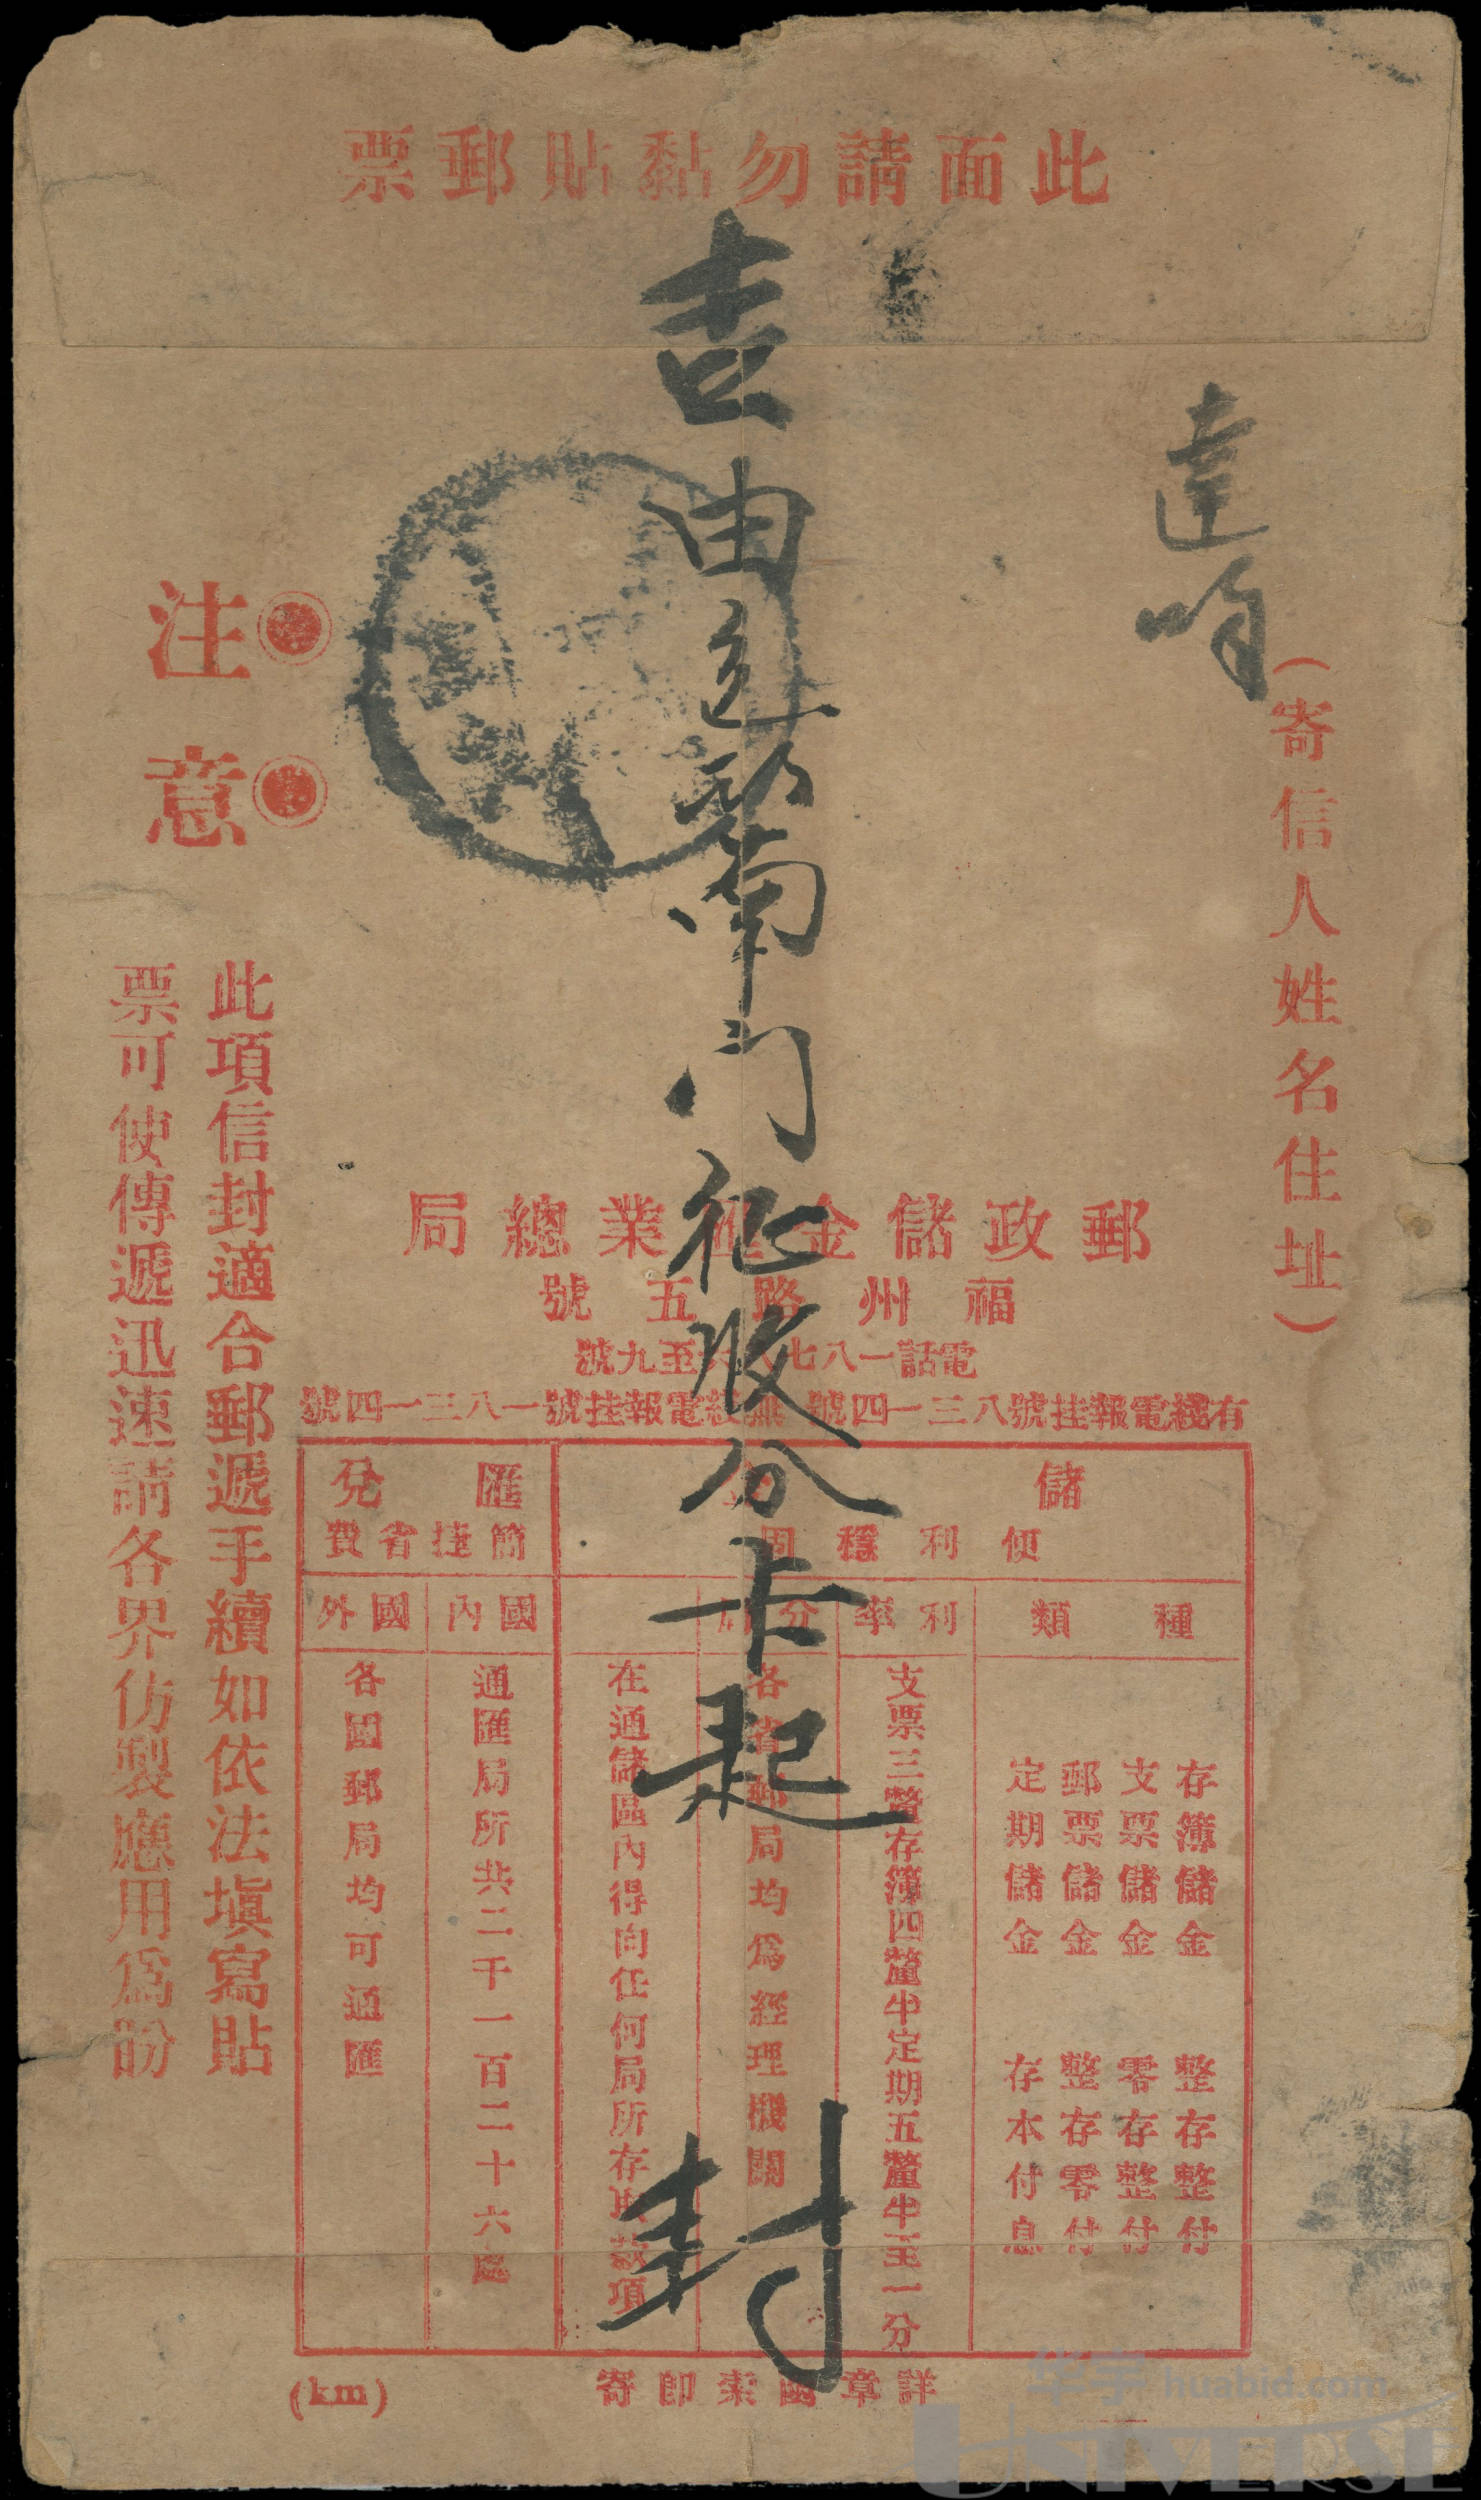 此面請勿黏貼郵票
(寄信人姓名住址)
吉
南門征收分卡起
封
注意
此項信封適合郵遞手續如依法塡寫貼
票可使傳遞迅速請各界仿製應用爲盼
郵政儲金匯業總局
福州路五號
電話一八七六至九號
有綫電報挂號八三一四號 無綫電報挂號一八三一四號
儲金
便利穩固
種類
存簿儲金 整存整付
支票儲金 零存整付
郵票儲金 整存零付
定期儲金 存本付息
利率
支票三釐存簿四釐半定期五釐半至一分
分
各省郵局均爲經理機關
在通儲區內得向任何局所存取款項
匯兌
簡捷省費
國內
通匯局所共二千一百二十六處
國外
各國郵局均可通匯
詳章函索即寄
(km)
华宇 huabid.com
UNIVERSE